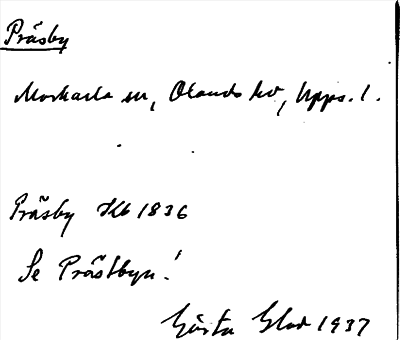 Präsby
Morkarla sn, Olands hd, Upps. l.
Präsby Hb 1836
Se Prästbyn!
Gösta Glad 1937